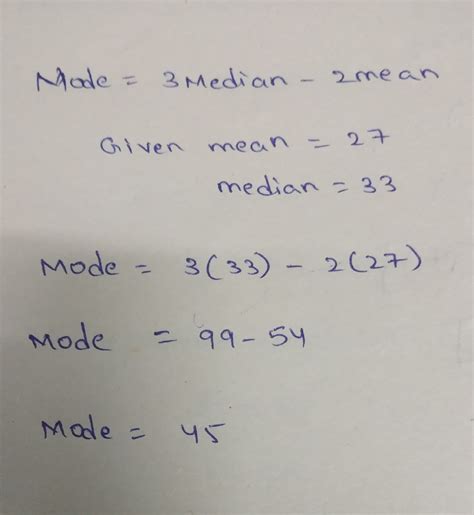 Mode = 3Median - 2mean
Given mean = 27
median = 33
Mode = 3(33) - 2(27)
Mode = 99 - 54
Mode = 45